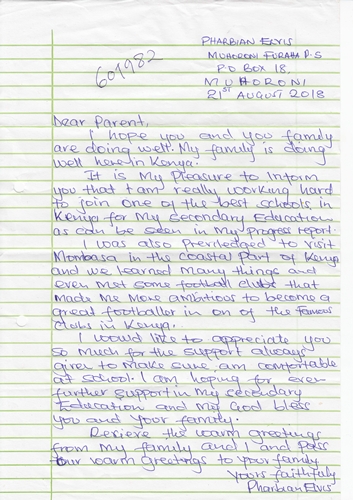 PHARBIAN ELVIS
MUHORONI FURAHA P.S
601982
PO BOX 18,
MUHORONI
21ST AUGUST 2018
Dear Parent,
I hope you and you family
are doing well. My family is doing
well here in Kenya.
It is My Pleasure to Inform
you that I am really working hard
to join one of the best schools in
Kenya for My secondary Education
as can be seen in My progress report.
I was also Previledged to visit
Mombasa in the coastal Part of Kenya
and we learned Many things and
even met some football clubs that
made Me More ambitious to become a
great footballer in on of the Famous
clubs in Kenya.
I would like to appreciate you
so much for the support always
given to make sure am comfortable
at school. I am hoping for even
further support in My secondary
Education and My God bless
You and Your family.
Recieve the warm greetings
from My family and I and Pass
Our warm greetings to your family
Yours faithfully
Pharbian Elvis